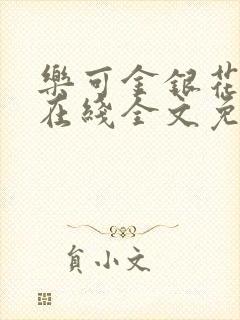 樂可金銀花
在綫全文免
負小文